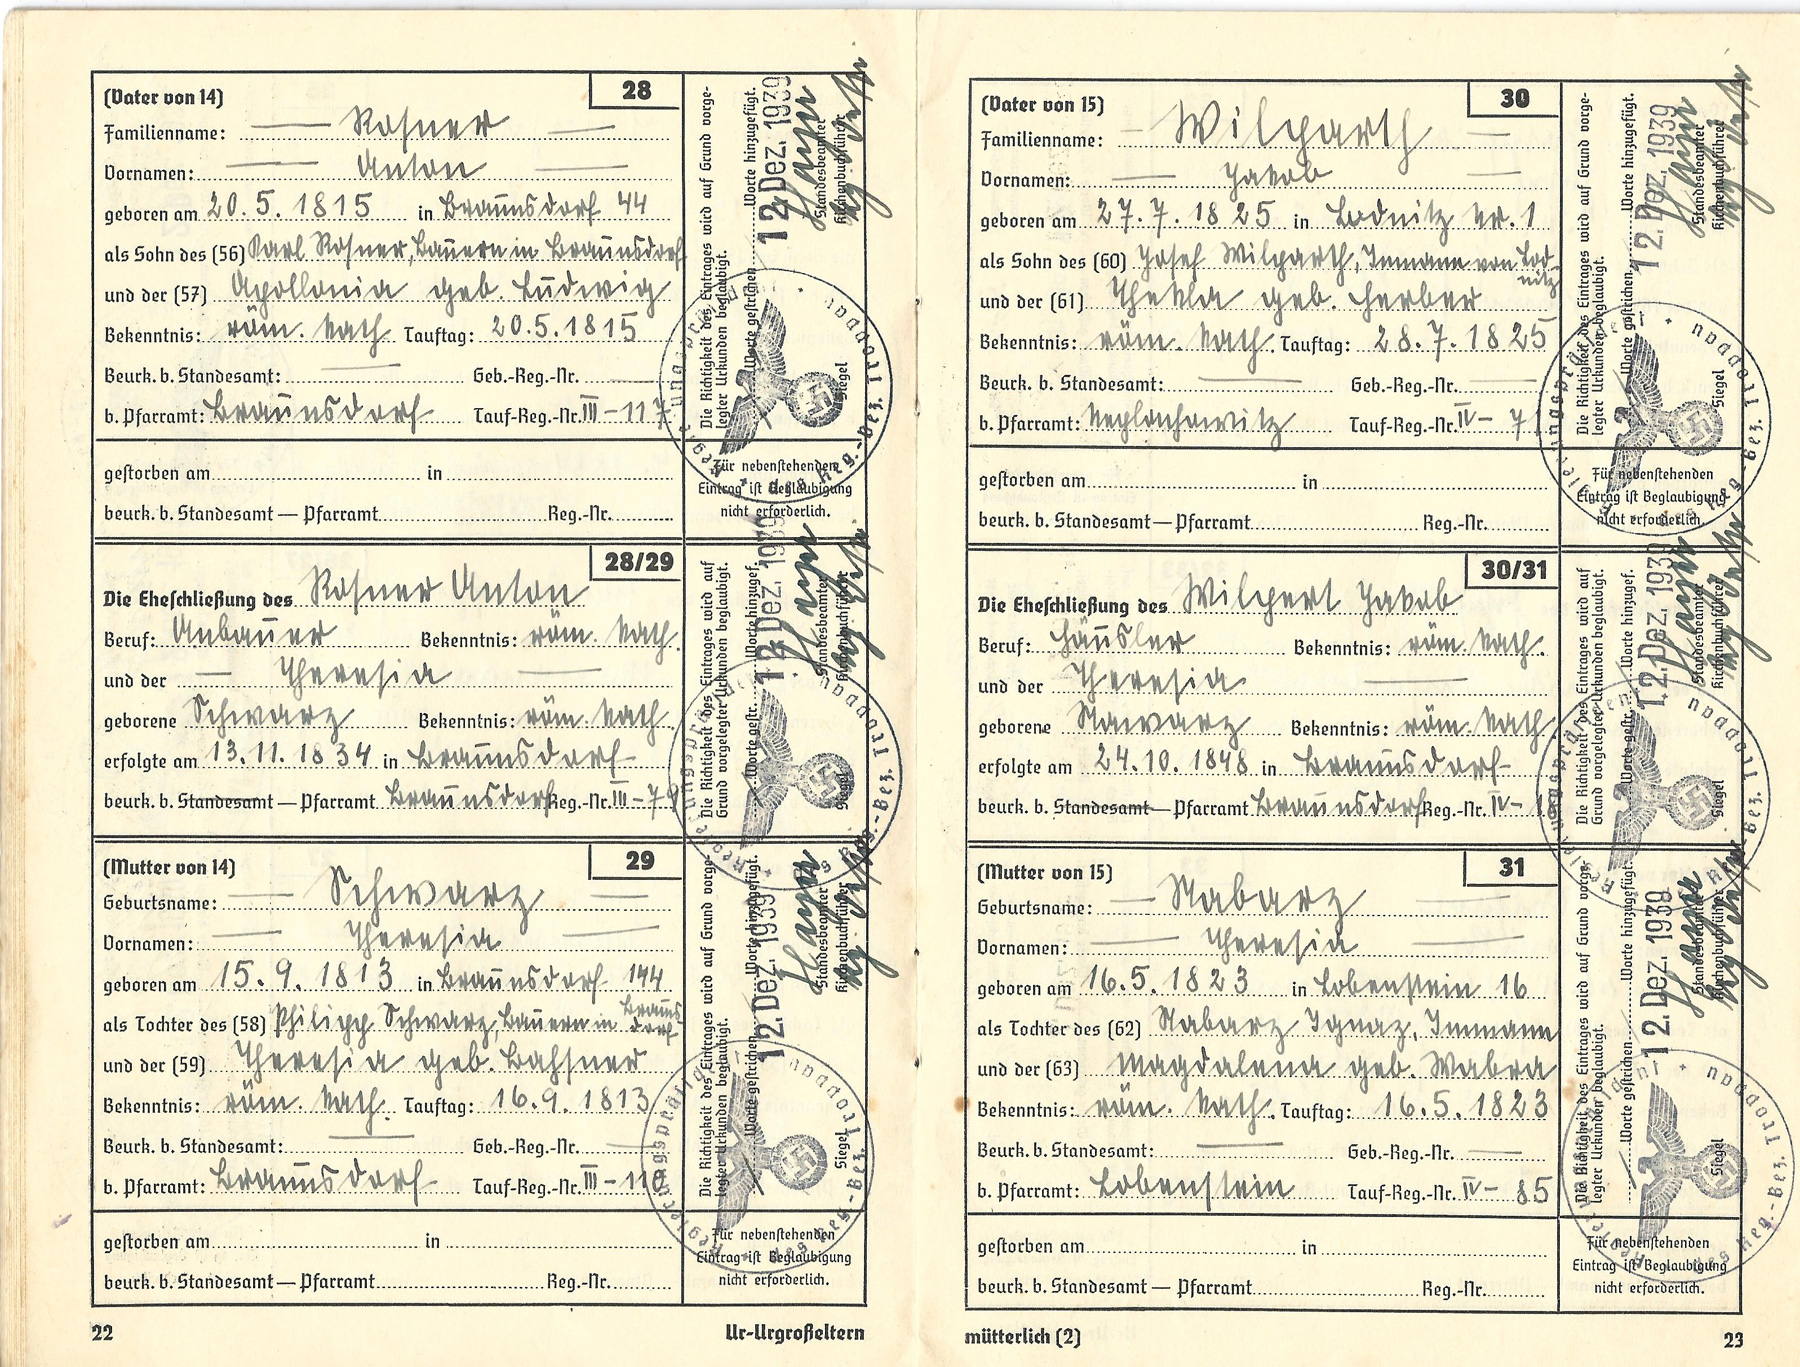 (Vater von 14) 28
Familienname: Rosner
Vornamen: Anton
geboren am 20.5.1815 in Braunsdorf 44
als Sohn des (56) Karl Rosner, Bauern in Braunsdorf
und der (57) Apollonia geb. Ludwig
Bekenntnis: röm. kath. Tauftag: 20.5.1815
Beurk. b. Standesamt: Geb.-Reg.-Nr.
b. Pfarramt: Braunsdorf Tauf-Reg.-Nr. III-117
gestorben am in
beurk. b. Standesamt — Pfarramt Reg.-Nr.
Die Richtigkeit des Eintrages wird auf Grund vorge-
legter Urkunden beglaubigt.
Worte gestrichen Worte hinzugefügt.
12. Dez. 1939
Standesbeamter
Kirchenbuchführer
Siegel
Regierungspräsident des Reg.-Bez. Troppau
Für nebenstehenden
Eintrag ist Beglaubigung
nicht erforderlich.
28/29
Die Eheschließung des Rosner Anton
Beruf: Anbauer Bekenntnis: röm. kath.
und der Theresia
geborene Schwarz Bekenntnis: röm. kath.
erfolgte am 13.11.1834 in Braunsdorf
beurk. b. Standesamt — Pfarramt Braunsdorf Reg.-Nr. III-79
Die Richtigkeit des Eintrages wird auf
Grund vorgelegter Urkunden beglaubigt.
Worte gestr. Worte hinzugef.
12. Dez. 1939
Standesbeamter
Kirchenbuchführer
Siegel
Regierungspräsident des Reg.-Bez. Troppau
(Mutter von 14) 29
Geburtsname: Schwarz
Vornamen: Theresia
geboren am 15.9.1813 in Braunsdorf 144
als Tochter des (58) Philipp Schwarz, Bauern in Brauns
dorf
und der (59) Theresia geb. Bahsner
Bekenntnis: röm. kath. Tauftag: 16.9.1813
Beurk. b. Standesamt: Geb.-Reg.-Nr.
b. Pfarramt: Braunsdorf Tauf-Reg.-Nr. III-110
gestorben am in
beurk. b. Standesamt — Pfarramt Reg.-Nr.
Die Richtigkeit des Eintrages wird auf Grund vorge-
legter Urkunden beglaubigt.
Worte gestrichen Worte hinzugefügt.
12. Dez. 1939
Standesbeamter
Kirchenbuchführer
Siegel
Regierungspräsident des Reg.-Bez. Troppau
Für nebenstehenden
Eintrag ist Beglaubigung
nicht erforderlich.
22 Ur-Urgroßeltern
(Vater von 15) 30
Familienname: Wilparth
Vornamen: Jakob
geboren am 27.7.1825 in Lodnitz Nr. 1
als Sohn des (60) Josef Wilparth, Inmann von Lod-
nitz
und der (61) Thekla geb. Herber
Bekenntnis: röm. kath. Tauftag: 28.7.1825
Beurk. b. Standesamt: Geb.-Reg.-Nr.
b. Pfarramt: Neplachowitz Tauf-Reg.-Nr. IV-71
gestorben am in
beurk. b. Standesamt — Pfarramt Reg.-Nr.
Die Richtigkeit des Eintrages wird auf Grund vorge-
legter Urkunden beglaubigt.
Worte gestrichen Worte hinzugefügt.
12. Dez. 1939
Standesbeamter
Kirchenbuchführer
Siegel
Regierungspräsident des Reg.-Bez. Troppau
Für nebenstehenden
Eintrag ist Beglaubigung
nicht erforderlich.
30/31
Die Eheschließung des Wilpert Jakob
Beruf: Häusler Bekenntnis: röm. kath.
und der Theresia
geborene Stawarz Bekenntnis: röm. kath
erfolgte am 24.10.1848 in Braunsdorf
beurk. b. Standesamt — Pfarramt Braunsdorf Reg.-Nr. IV-
Die Richtigkeit des Eintrages wird auf
Grund vorgelegter Urkunden beglaubigt.
Worte gestr. Worte hinzugef.
12. Dez. 1939
Standesbeamter
Kirchenbuchführer
Siegel
Regierungspräsident des Reg.-Bez. Troppau
(Mutter von 15) 31
Geburtsname: Stabarz
Vornamen: Theresia
geboren am 16.5.1823 in Lobenstein 16
als Tochter des (62) Stabarz Ignaz, Inmann
und der (63) Magdalena geb. Wabra
Bekenntnis: röm. kath. Tauftag: 16.5.1823
Beurk. b. Standesamt: Geb.-Reg.-Nr.
b. Pfarramt: Lobenstein Tauf-Reg.-Nr. IV- 85
gestorben am in
beurk. b. Standesamt — Pfarramt Reg.-Nr.
Die Richtigkeit des Eintrages wird auf Grund vorge-
legter Urkunden beglaubigt.
Worte gestrichen Worte hinzugefügt.
12. Dez. 1939
Standesbeamter
Kirchenbuchführer
Siegel
Regierungspräsident des Reg.-Bez. Troppau
Für nebenstehenden
Eintrag ist Beglaubigung
nicht erforderlich.
mütterlich (2) 23